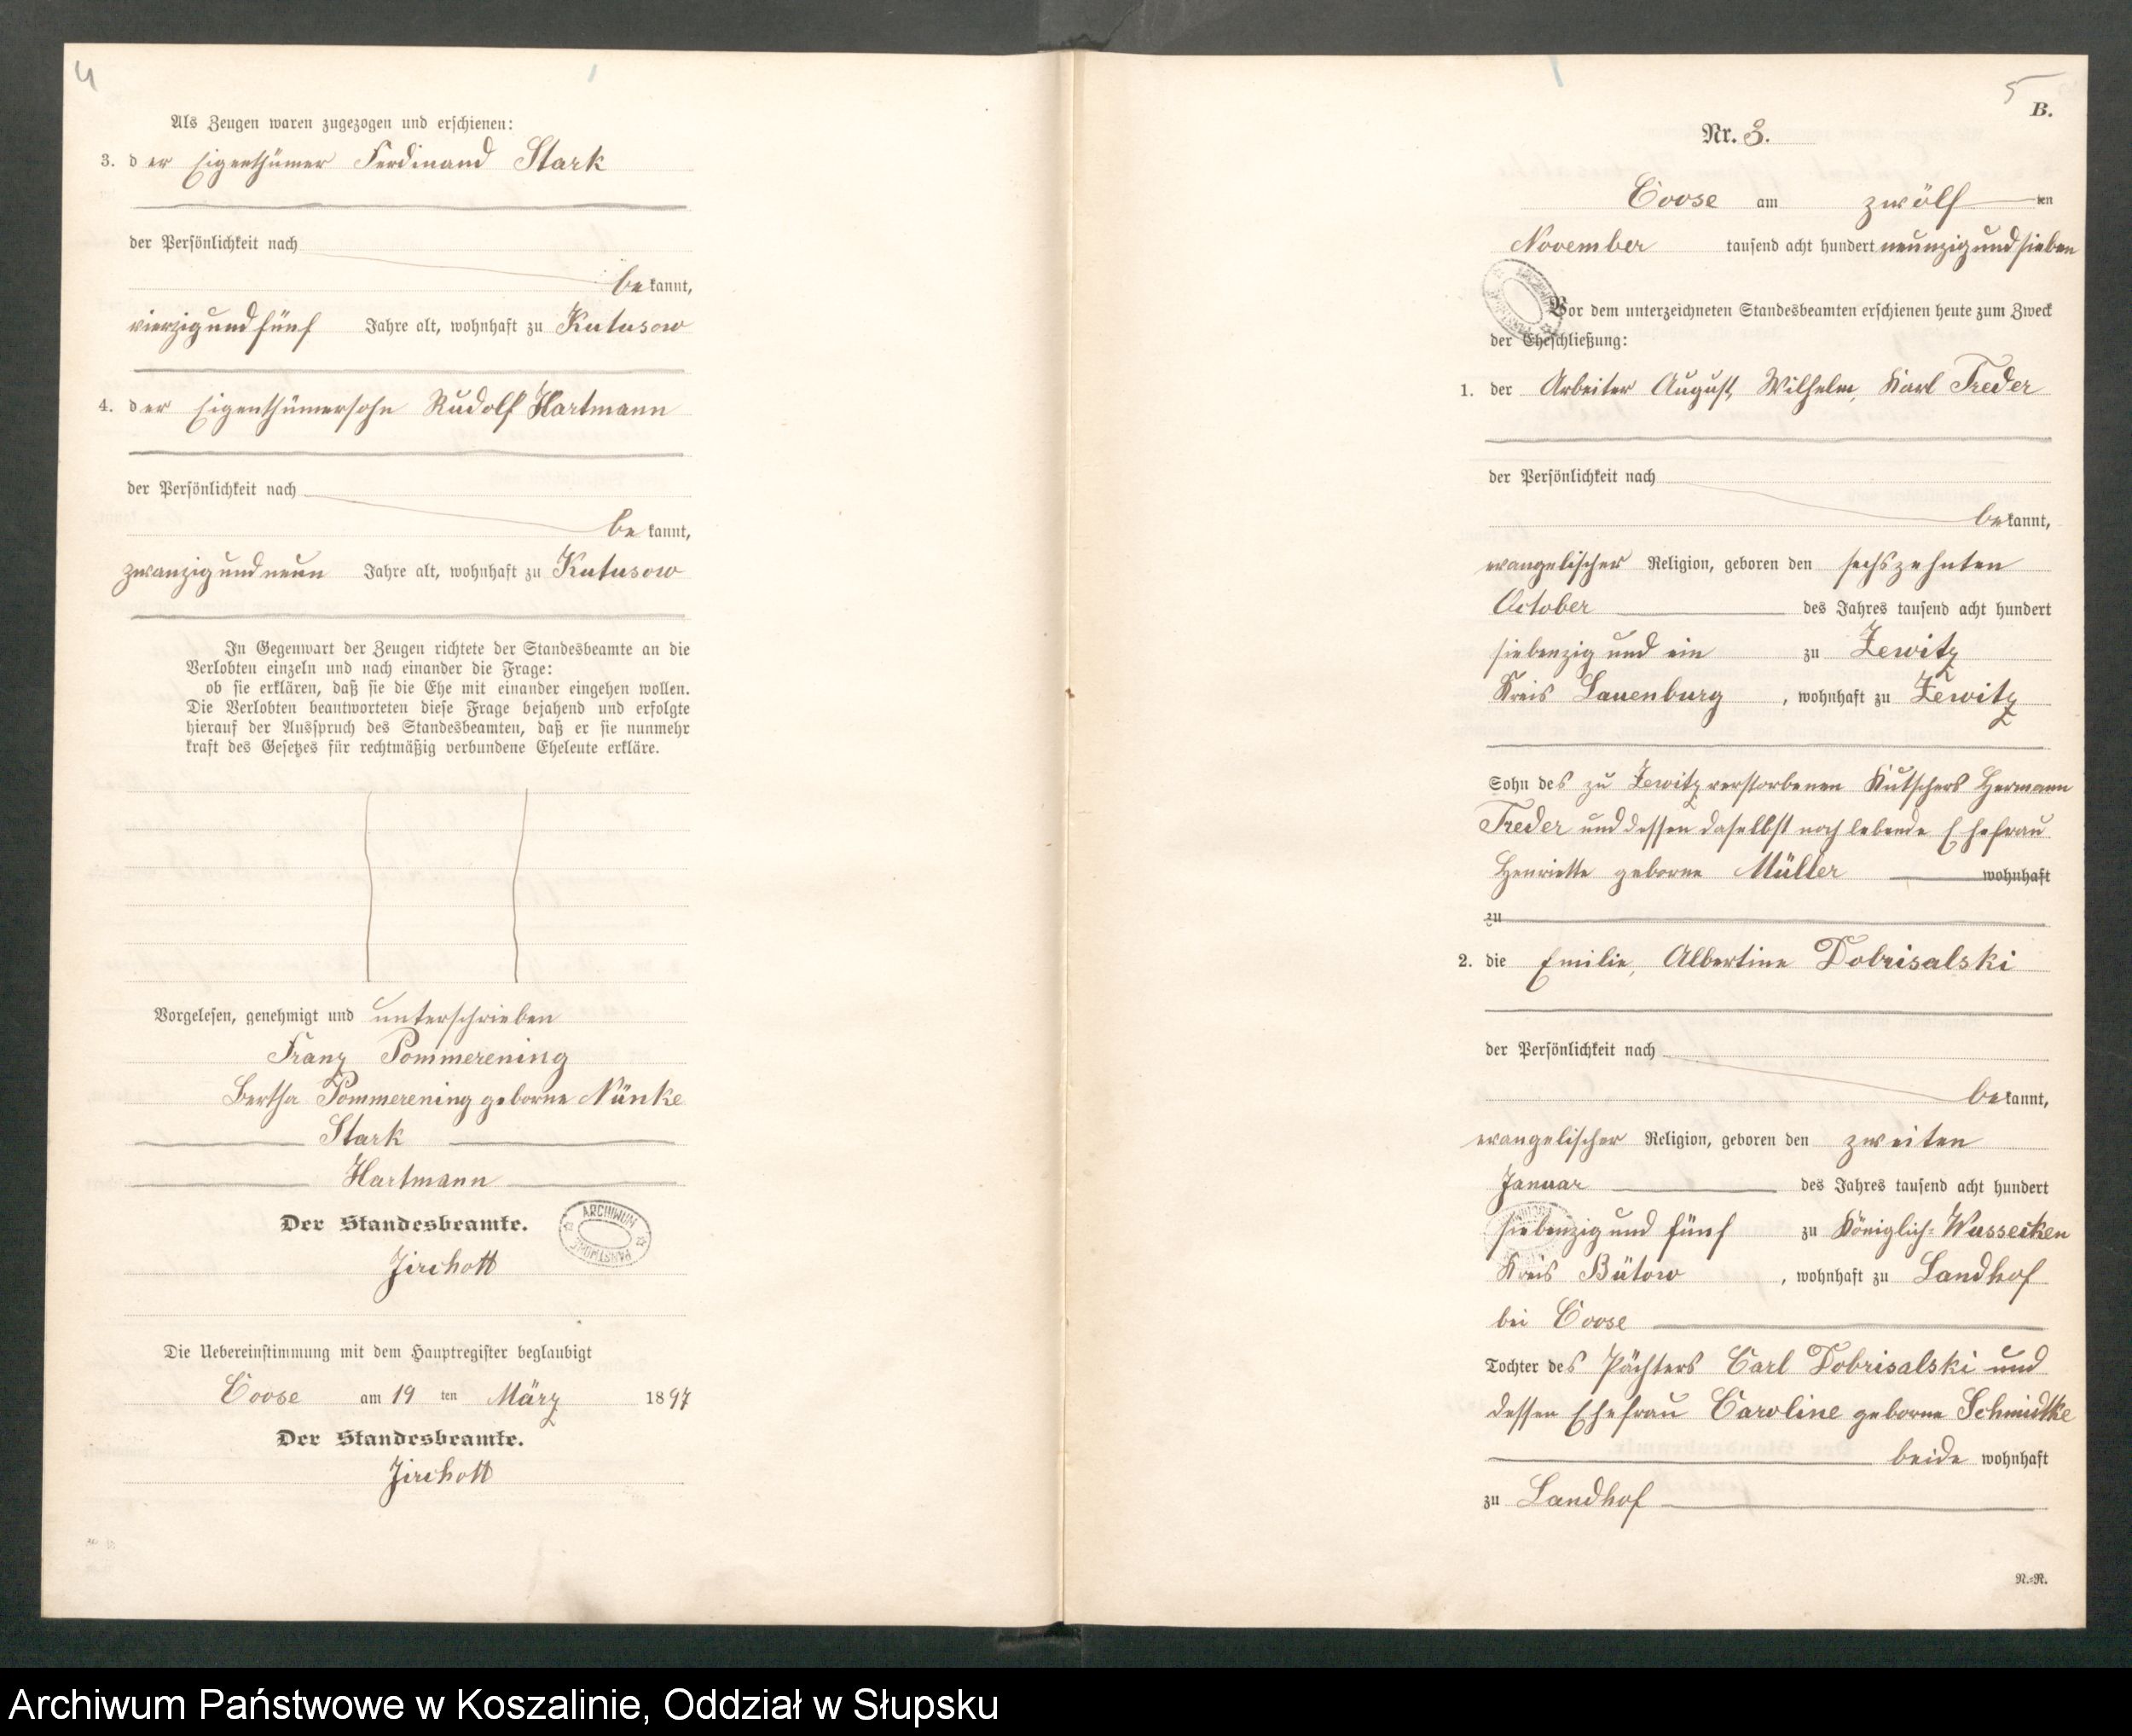 4
Als Zeugen waren zugezogen und erschienen:
3. der Eigenthümer Ferdinand Stark
der Persönlichkeit nach
bekannt,
vierzig und fünf Jahre alt, wohnhaft zu Kutusow
4. der Eigenthümersohn Rudolf Hartmann
der Persönlichkeit nach
bekannt,
zwanzig und neun Jahre alt, wohnhaft zu Kutusow
In Gegenwart der Zeugen richtete der Standesbeamte an die
Verlobten einzeln und nach einander die Frage:
ob sie erklären, daß sie die Ehe mit einander eingehen wollen.
Die Verlobten beantworteten diese Frage bejahend und erfolgte
hierauf der Ausspruch des Standesbeamten, daß er sie nunmehr
kraft des Gesetzes für rechtmäßig verbundene Eheleute erkläre.
Vorgelesen, genehmigt und unterschrieben
Franz Pommerening
Bertha Pommerening geborne Nünke
Stark
Hartmann
Der Standesbeamte.
ARCHIWUM
Jirchott
Die Uebereinstimmung mit dem Hauptregister beglaubigt
Coose am 19 ten März 1897
Der Standesbeamte.
Jirchott
5
B.
Nr. 3.
Coose am zwölf ten
November tausend acht hundert neunzig und sieben
Vor dem unterzeichneten Standesbeamten erschienen heute zum Zweck
der Eheschließung:
1. der Arbeiter August, Wilhelm, Karl Treder
der Persönlichkeit nach
bekannt,
evangelischer Religion, geboren den sechszehnten
October des Jahres tausend acht hundert
siebenzig und ein zu Zewitz
Kreis Lauenburg, wohnhaft zu Zewitz
Sohn des zu Zewitz verstorbenen Kutschers Hermann
Treder und dessen daselbst noch lebende Ehefrau
Henriette geborne Müller wohnhaft
zu
2. die Emilie, Albertine Dobrisalski
der Persönlichkeit nach
bekannt,
evangelischer Religion, geboren den zweiten
Januar des Jahres tausend acht hundert
siebenzig und fünf zu Königlich-Wussecken
Kreis Bütow, wohnhaft zu Landhof
bei Coose
Tochter des Pächters Carl Dobrisalski und
dessen Ehefrau Caroline geborne Schmidtke
beide wohnhaft
zu Landhof
N.=N.
Archiwum Państwowe w Koszalinie, Oddział w Słupsku